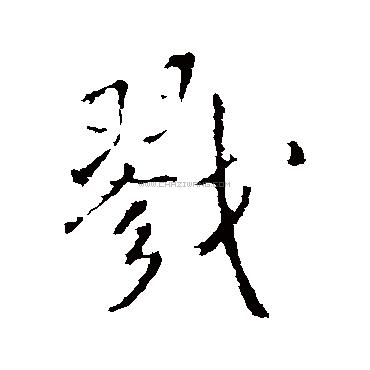 戮
WWW.CHAZIWANG.COM